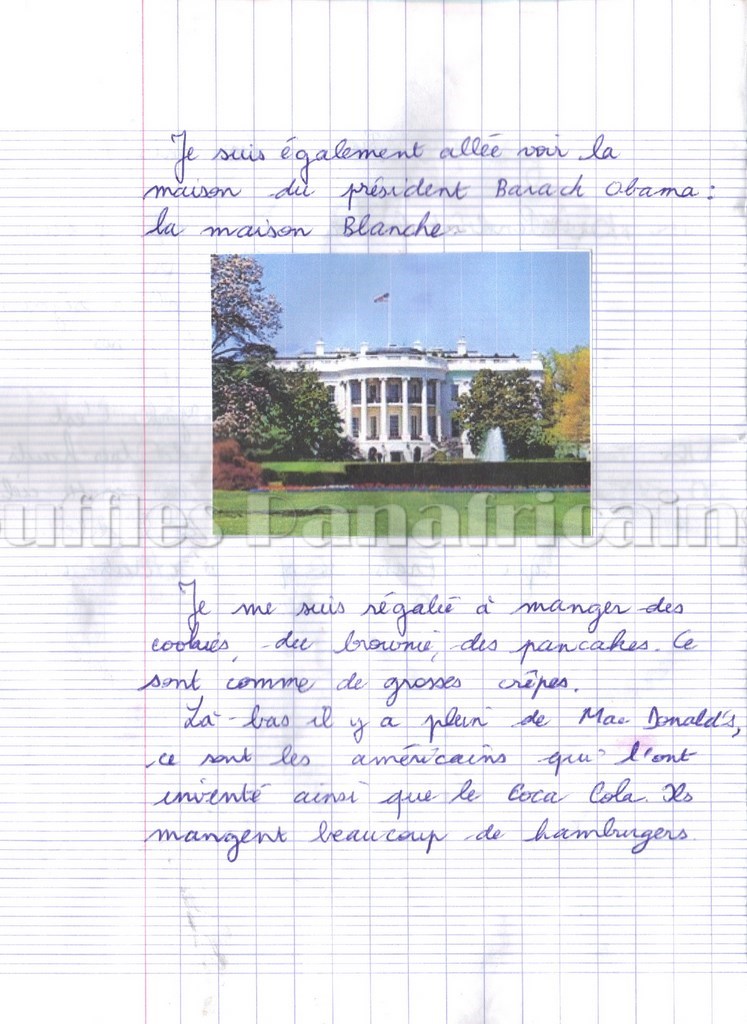 Je suis également allée voir la
maison du président Barack Obama :
la maison Blanche
Panafricain
Je me suis régalé à manger des
cookies, du brownie, des pancakes. Ce
sont comme de grosses crêpes.
Là-bas il y a plein de Mac Donald's,
ce sont les américains qui l'ont
inventé ainsi que le Coca Cola. Ils
mangent beaucoup de hamburgers